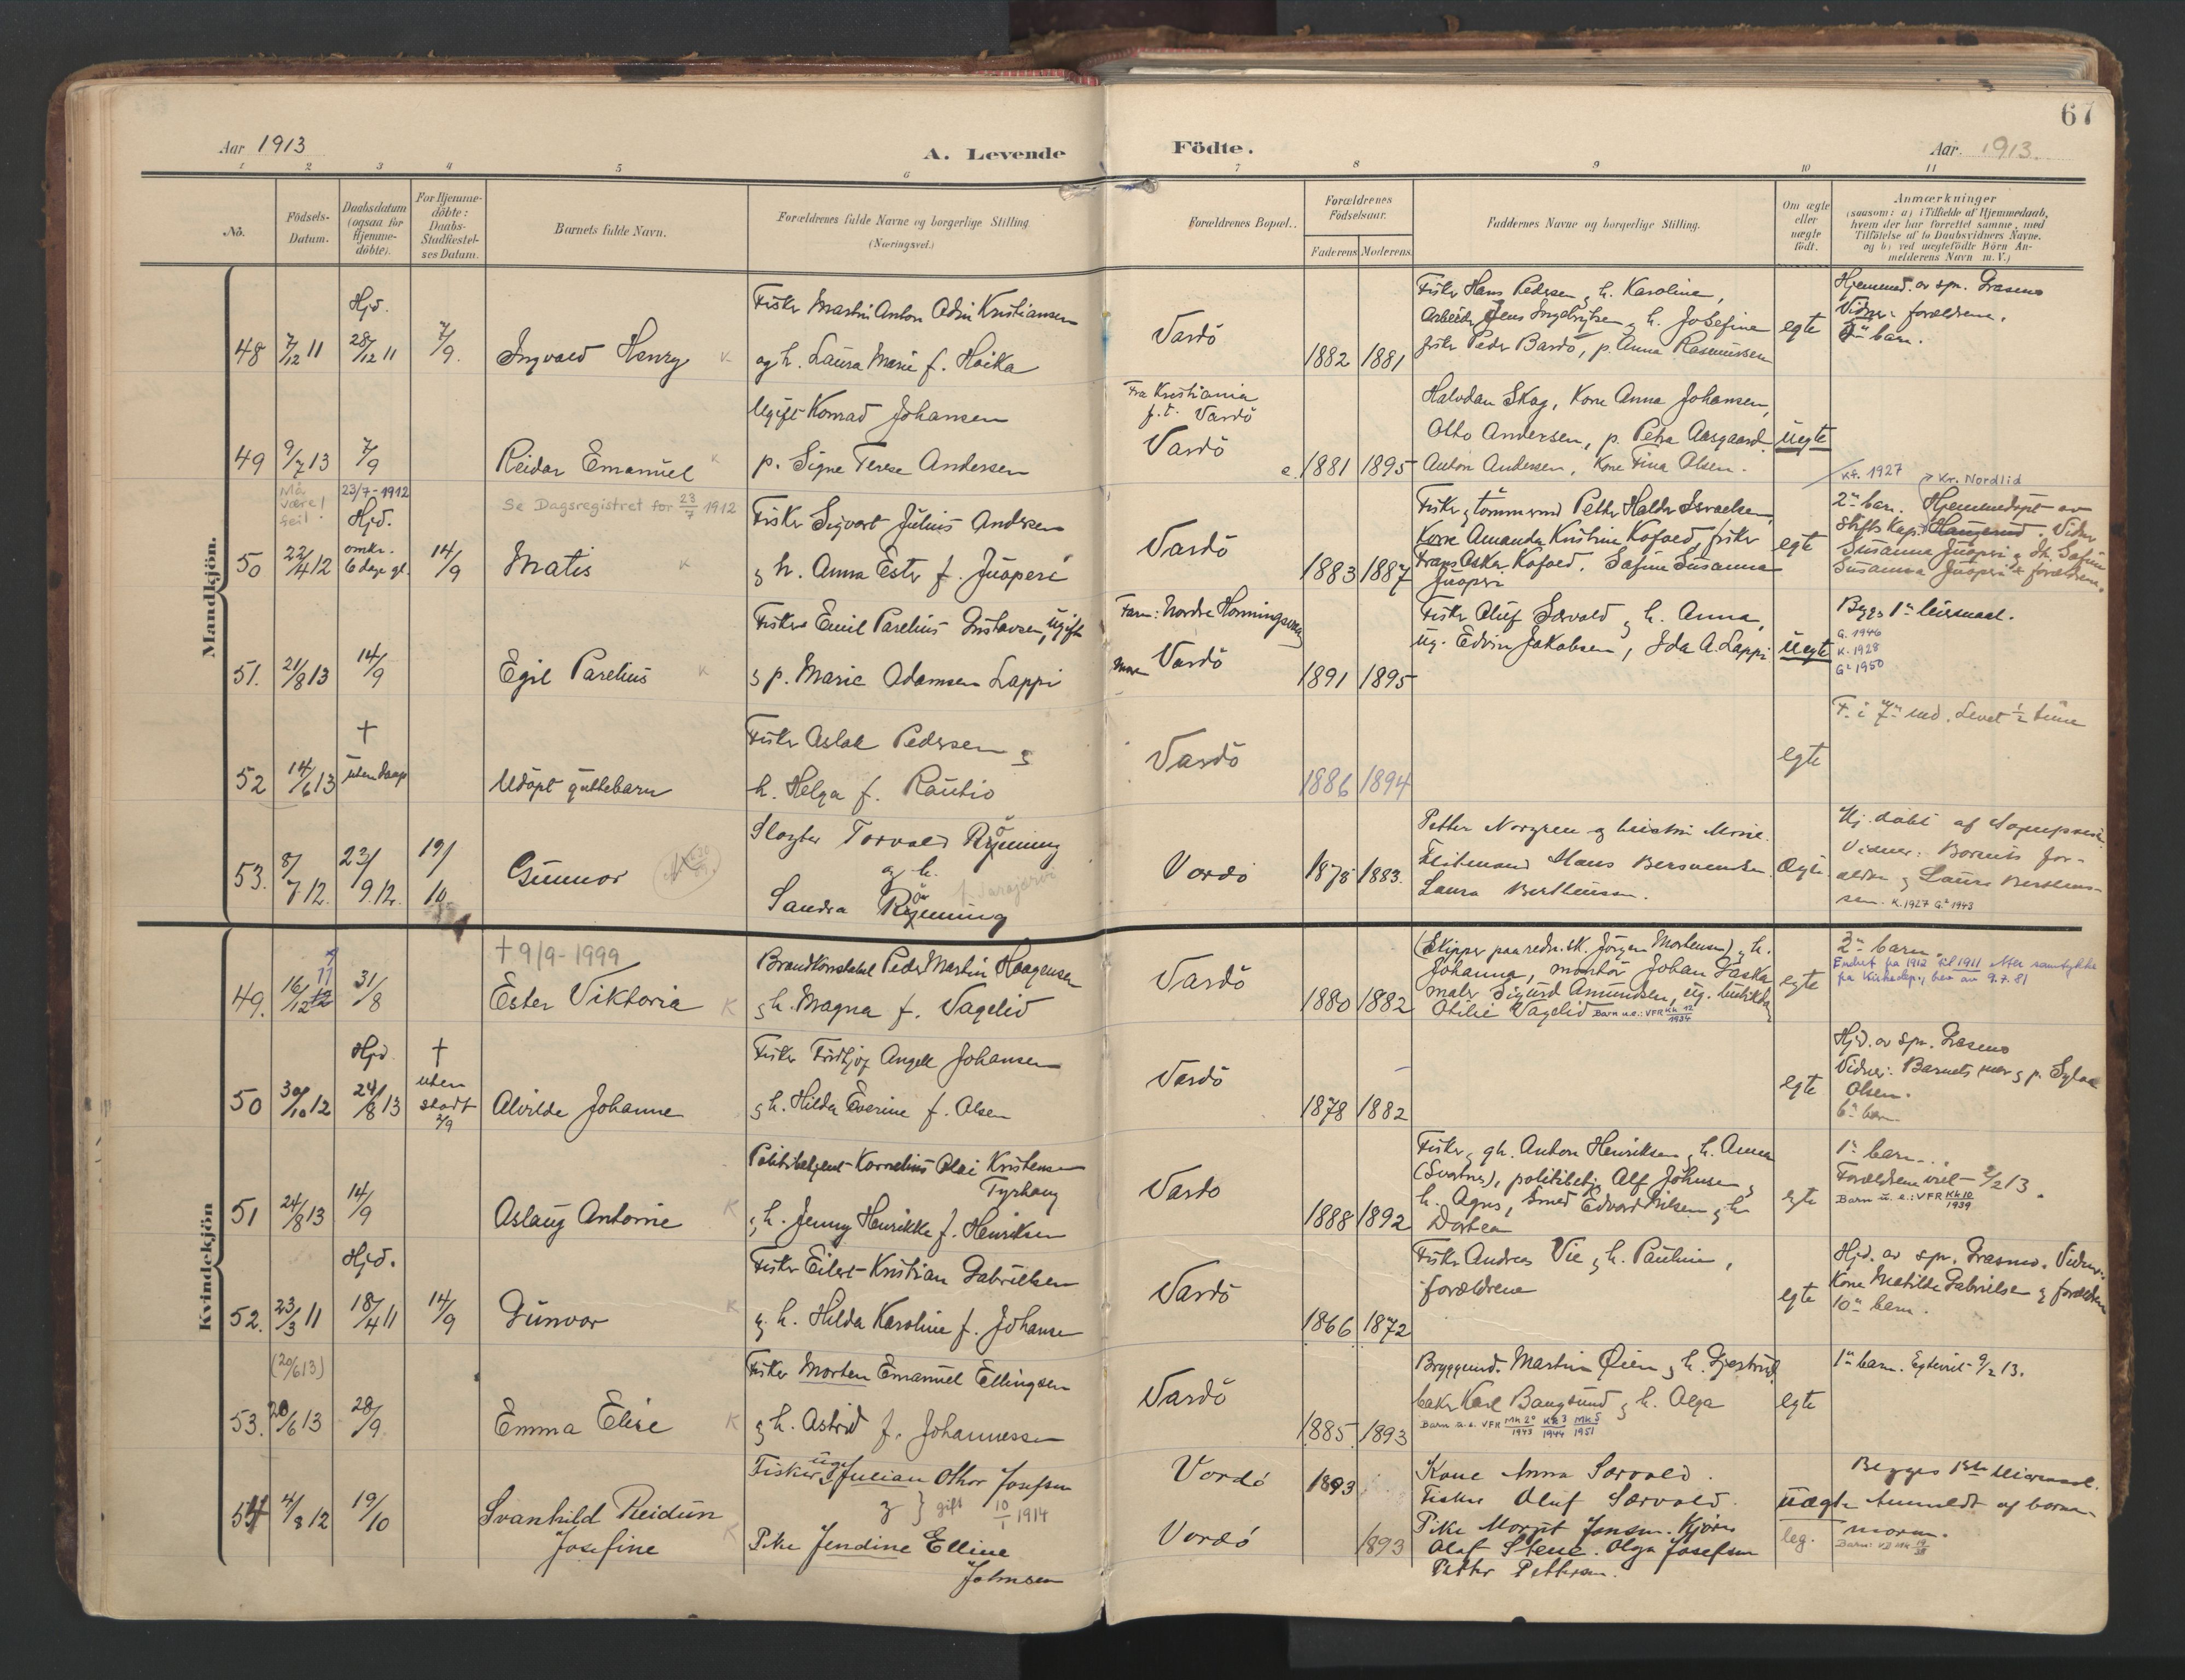 67
Aar 1913
A. Levende
Födte.
Aar. 1913.
1 2 3 4 5 6 7 8 9 10 11
No.
Födsels-
Datum.
Daabsdatum
(ogsaa for
Hjemme-
döbte).
For Hjemme-
döbte:
Daabs-
Stadfæstel-
ses Datum.
Barnets fulde Navn.
Forældrenes fulde Navne og borgerlige Stilling
(Næringsvei.)
Forældrenes Bopæl.
Forældrenes
Födselsaar.
Faderens
Moderens
Faddernes Navne og borgerlige Stilling.
Om ægte
eller
uægte
födt.
Anmærkninger
(saasom: a) i Tilfælde af Hjemmedaab,
hvem der har forrettet samme, med
Tilföielse af to Daabsvidners Navne.
og b) ved uægtefödte Börn An-
melderens Navn m. V.)
Mandkjön.
48
7/12 11
Hjd.
28/12 11
7/9.
Ingvald Henry
Fisker Martin Anton Odin Kristiansen
og h. Laura Marie f. Hoika
Vardö
1882
1881
Fisker Hans Pedersen g h. Karoline,
Arbeider Jens Ingebrigtsen g h. Josefine
fisker Peder Bardö, p. Anna Rasmussen
egte
Hjemmed. av spr.
Vidner: forældrene.
barn.
49
9/7 13
7/9
Reidar Emanuel
Ugift Konrad Johansen
p. Signe Terese Andersen
Fra Kristiania
f. t. Vardö
Vardö
1881
1895
Halvdan Skag, Kone Anna Johansen,
Otto Andersen, p. Petra Aasgaard
Anton Andersen, Kone Tina Olsen.
uegte
Må
være
feil!
23/7-1912
Se Dagsregistret for 23/7 1912
50
22/4 12
Hjd.
omkr.
6 dage gl.
14/9
Matis
Fisker Sigvart Julius Andersen
g h. Anna Ester f. Juoperi
Vardö
1883
1887
Fisker g tömmermd Petter Halder Israelsen,
Kone Amanda Kristine Kofoed, fisker
Frans Oskar Kofoed. Safine Susanna
Juoperi
egte
Kf. 1927
Kr. Nordlid
2n barn. Hjemmedöpt av
stifts kap. Haugerud. Vidner
Susanna Juoperi
Susanna Juoperi forældrene.
51.
21/8 13
14/9
Egil Parelius
Fisker Emil Parelius Gustavsen, ugift
g p. Marie Adamsen Lappi
Farn: Nordre Honningsvaag
Moren Vardö
1891
1895
Fisker Oluf Sørvold g h. Anna,
ug. Edvin Jakobsen, Ida A. Lappi
uegte
Begges 1n leiermaal.
G. 1946
K. 1928
G2 1950
52
14/6 13
†
uten daap
Udöpt guttebarn
Fisker Aslak Pedersen g
h. Helga f. Rautio
Vardö
1886
1894
egte
F. i 7n md. Levet 1/2 time
53.
8/7 12.
23/9. 12.
19/10
Gunnor
Slagter Torvald Rönning
og h.
Sandra Rönning
Vardö
1875
1883.
Petter Norgren g hustru Marie.
Hans Bersvendsen
Laura Berthinsen.
Ægte
Hj. döbt af
Vidner: Barnets for-
ældre g Laura
K. 1927 G.2 1943
Kvindekjön
† 9/9-1999
49.
16/12 11
31/8
Ester Viktoria
Brandkonstabel Peder Martin Haagensen
g h. Magna f. Vagelid
Vardö
1880
1882
(Skipper paa redn. sk. Jörgen Mortensen) g h.
Johanna, montör Johan Saska
maler Sigurd Amundsen, ug. butikkd.
Otilie Vagelid Barn u.e.: VFR Kk 12/1934
egte
2n barn.
Endret fra 1912 til 1911 etter samtykke
fra Kirkedep., brev av 9.7.81
50
30/10 12
Hjd.
24/8 13
†
uten
stadf
7/9
Alvilde Johanne
Fisker Fridtjof Angell Johansen
g h. Hilda Everine f. Olsen
Vardö
1878
1882
egte
Hjd. av spr.
Vidner: Barnets mor g p. Sylva
Olsen.
6n barn
51
24/8 13
14/9
Aslaug Antonie
Politibetjent Kornelius Olai Kristensen
Tyrhaug
g h. Jenny Henrikke f. Henriksen
Vardö
1888
1892
Fisker g gh. Anton Henriksen g h. Anna
(Svartnes), politibetj. Alf Johnsen g
h. Agnes, Smed Edvard Nilsen g h
Dortea
egte
1n barn.
Forældrene viet 2/2 13.
Barn u. e.: VFR Kk 10/1939
52.
23/3 11
Hjd.
18/4 11
14/9
Gunvor
Fisker Eilert Kristian Gabrielsen
g h. Hilda Karoline f. Johansen
Vardö
1866
1872
Fisker Andreas Vie g h. Pauline,
forældrene
egte
Hjd. av spr. Vidner:
Kone Matilde Gabrielsen g forældrene
10n barn.
(20/6 13)
53.
20/6 13
28/9
Emma Elise
Fisker Morten Emanuel Ellingsen
g h. Astrid f. Johannessen
Vardö
1885
1893
Bryggemd. Martin Öien g h. Gjertrud,
baker Karl Baugsund g h. Olga
Barn u.e. VFR Mk 20/1943 Kk 3/1944 Mk 5/1951
egte
1n barn. Egteviet 9/2 13.
54
4/8 12
19/10
Svanhild Reidun
Josefine
Fisker ugift Julian Othor Josefsen
g } gift 10/1 1914
Pike Jendine Elline
Johnsen
Vardö
Vardö
1893
1893
Kone Anna Sörvold.
Fisker Oluf Sörvold.
Pike Margit Jensen. Kjöres
Olaf Stene. Olga Josefsen
Petter Pettersen.
uægte
leg.
Begges 1ste leiermaal.
Anmeldt af barnets
mormor.